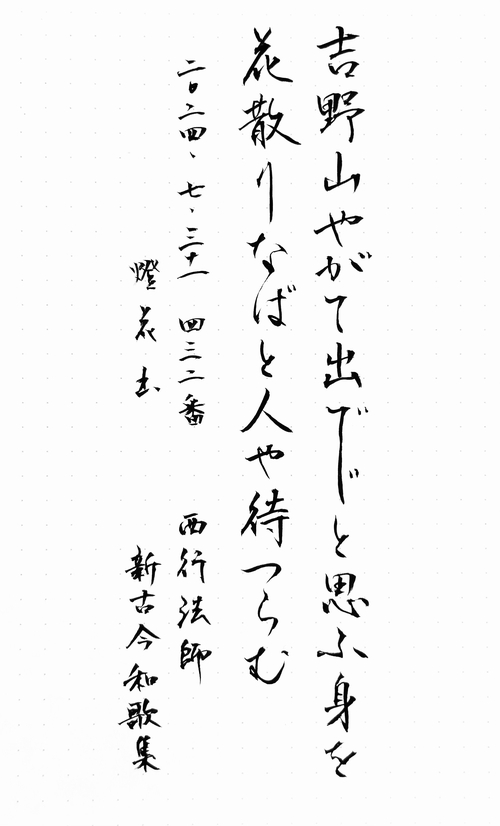 吉野山やがて出でじと思ふ身を
花散りなばと人や待つらむ
二〇二四、七、三十一 四三二番 西行法師
燈花 新古今和歌集